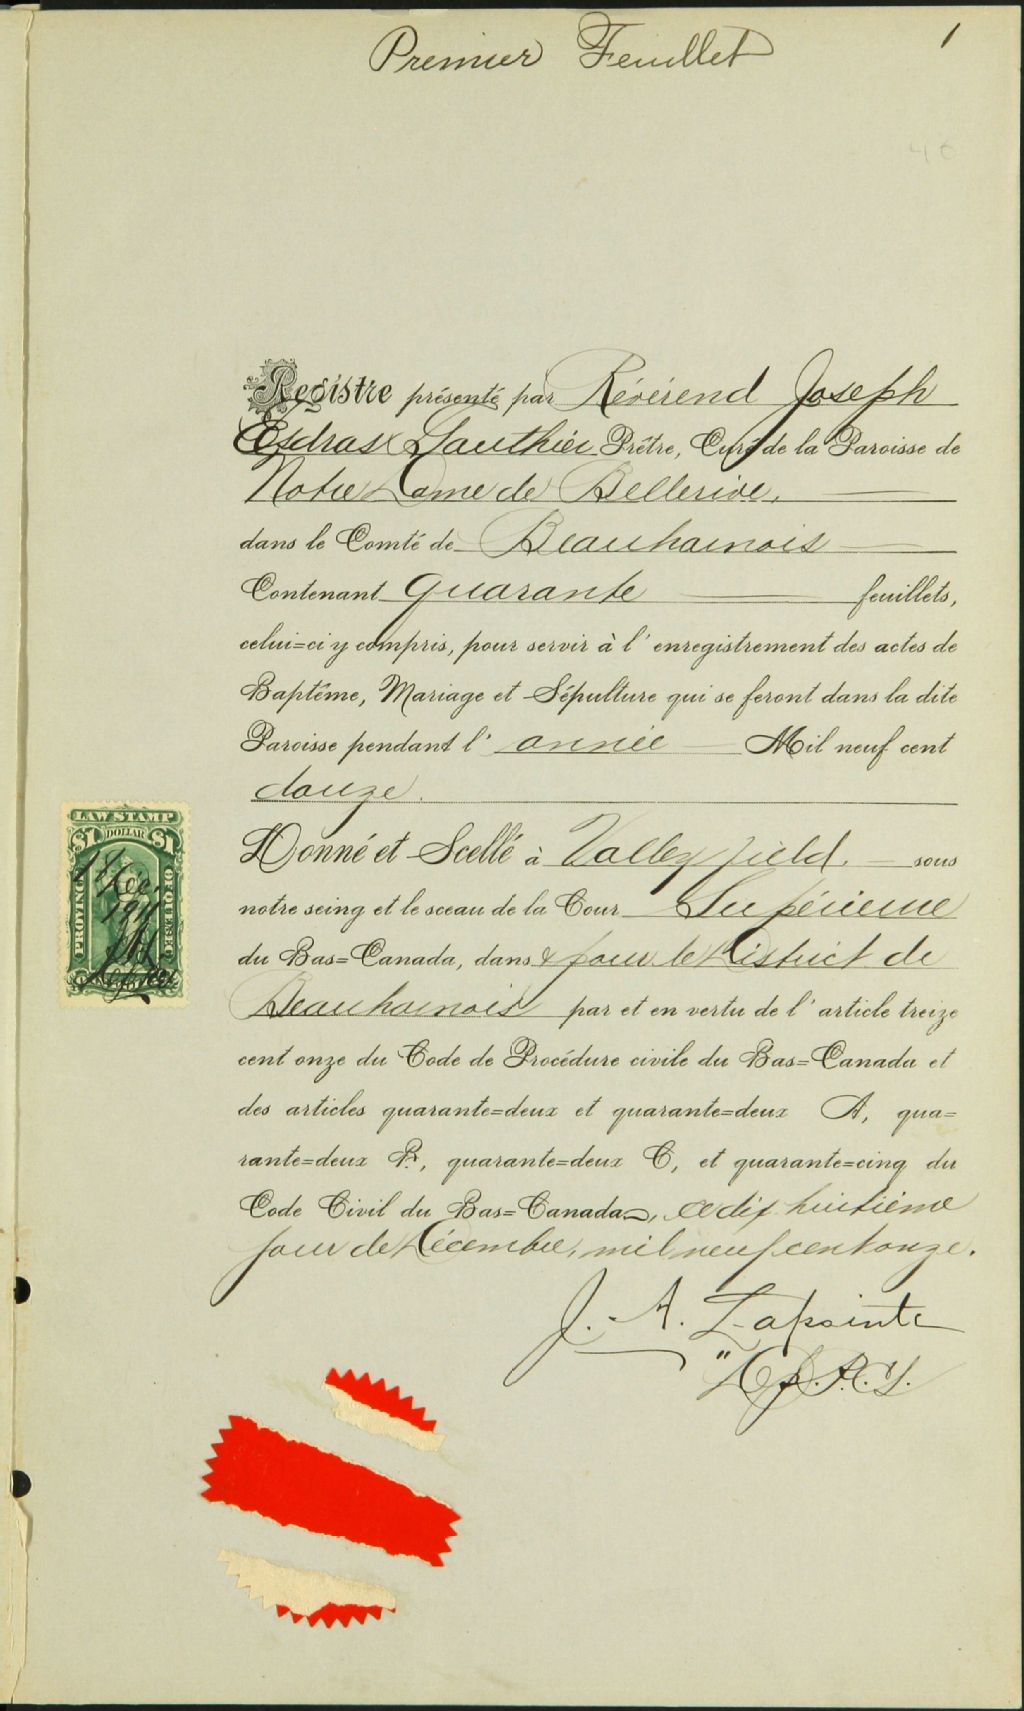 Premier Feuillet
1
40
Registre présenté par Révérend Joseph
Esdras Gauthier Prêtre, Curé de la Paroisse de
Notre Dame de Bellerive,
dans le Comté de Beauharnois
Contenant quarante feuillets,
celui=ci y compris, pour servir à l'enregistrement des actes de
Baptême, Mariage et Sépulture qui se feront dans la dite
Paroisse pendant l'année Mil neuf cent
douze.
Donné et Scellé à Valleyfield. sous
notre seing et le sceau de la Cour Supérieure
du Bas=Canada, dans & pour le District de
Beauharnois par et en vertu de l'article treize
cent onze du Code de Procédure civile du Bas=Canada et
des articles quarante=deux et quarante=deux A, qua=
rante=deux B, quarante=deux C, et quarante=cinq du
Code Civil du Bas=Canada, ce dix huitième
jour de Décembre, mil neuf cent onze.
J. A. Lapointe
"Dp. P.C.S.
LAW STAMP
$1 DOLLAR $1
PROVINCE OF QUEBEC
18 Déc.
1911